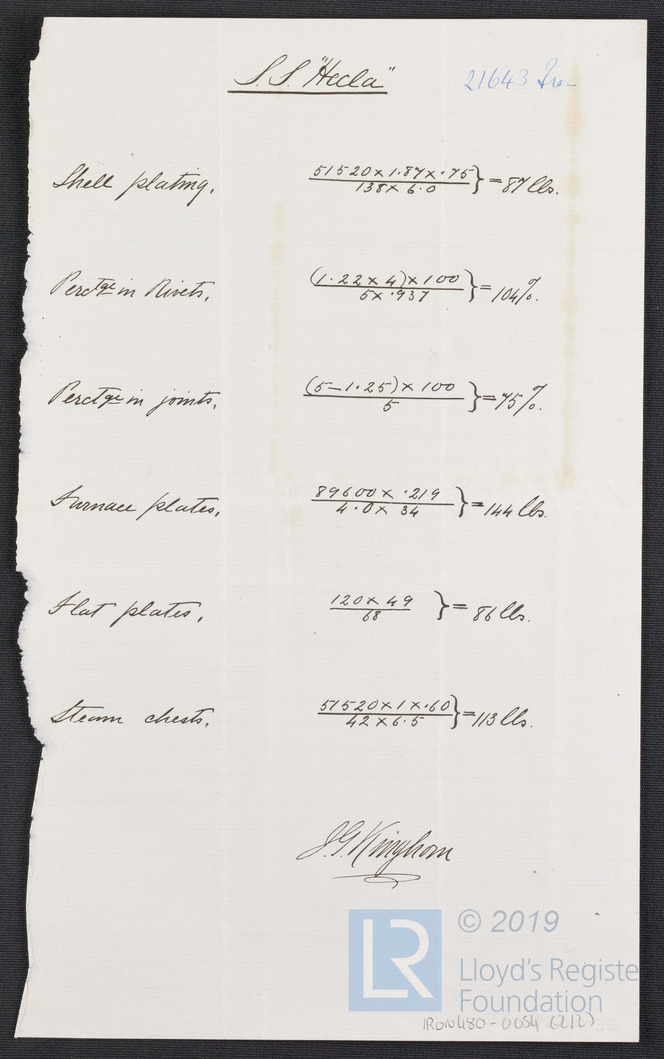 S.S. "Hecla" 21643 Iro-
Shell plating, 51520 x 1.87 x .75 / 138 x 6.0 } = 87 lbs.
Perctge in Rivets, (1.22 x 4) x 100 / 5 x .937 } = 104%.
Perctge in joints, (5-1.25) x 100 / 5 } = 75%.
Furnace plates, 89600 x .219 / 4.0 x 34 } = 144 lbs.
Flat plates, 120 x 49 / 68 } = 86 lbs.
Steam chests, 51520 x 1 x .60 / 42 x 6.5 } = 113 lbs.
J.G. Kinghorn
LR © 2019
Lloyd's Registe
Foundation
IRON480-0054 (2/2)